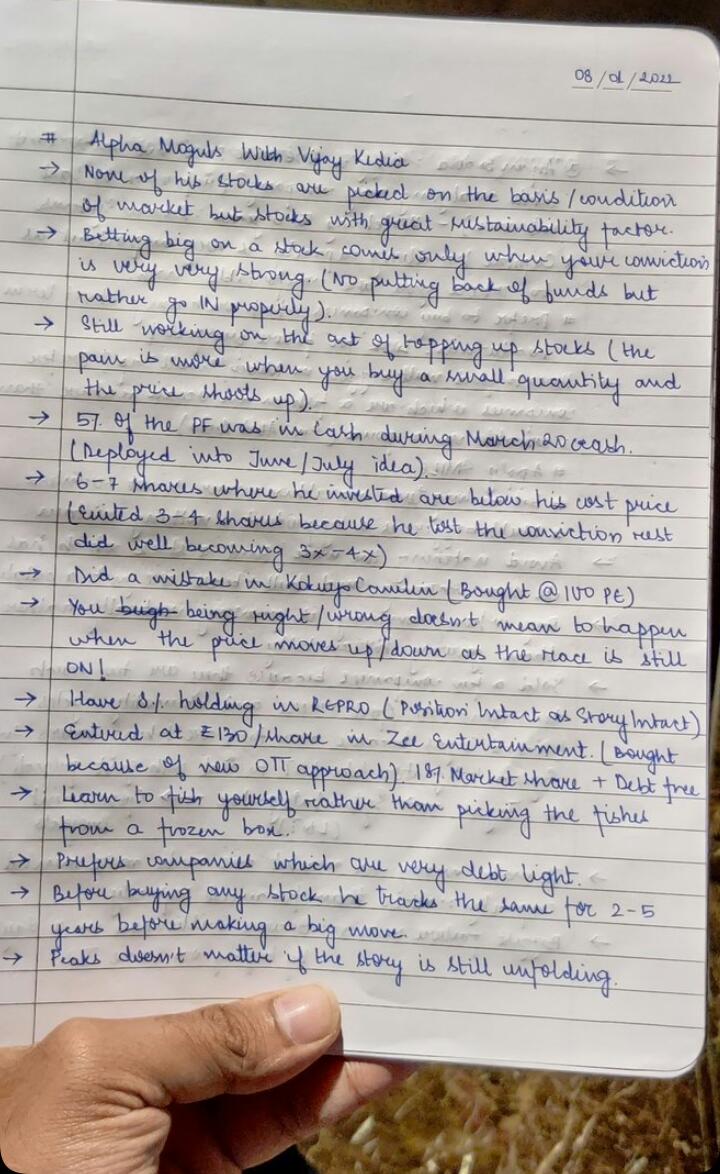 08/01/2022
# Alpha Moguls With Vijay Kedia
→ None of his stocks are picked on the basis/condition
of market but stocks with great sustainability factor.
→ Betting big on a stock comes only when your conviction
is very very strong. (No putting back of funds but
rather go IN properly).
→ Still working on the act of topping up stocks (the
pain is more when you buy a small quantity and
the price shoots up).
→ 5% of the PF was in Cash during March 20 crash.
(Deployed into June/July idea)
→ 6-7 shares where he invested are below his cost price
(Exited 3-4 shares because he lost the conviction rest
did well becoming 3x-4x)
→ Did a mistake in Kokuyo Camlin (Bought @ 100 PE)
→ You being right/wrong doesn't mean to happen
when the price moves up/down as the race is still
ON!
→ Have 8% holding in REPRO (Position Intact as Story Intact)
→ Entered at ₹130/share in Zee Entertainment. (Bought
because of new OTT approach) 18% Market share + Debt free
→ Learn to fish yourself rather than picking the fishes
from a frozen box.
→ Prefers companies which are very debt light.
→ Before buying any stock he tracks the same for 2-5
years before making a big move.
→ Peaks doesn't matter if the story is still unfolding.